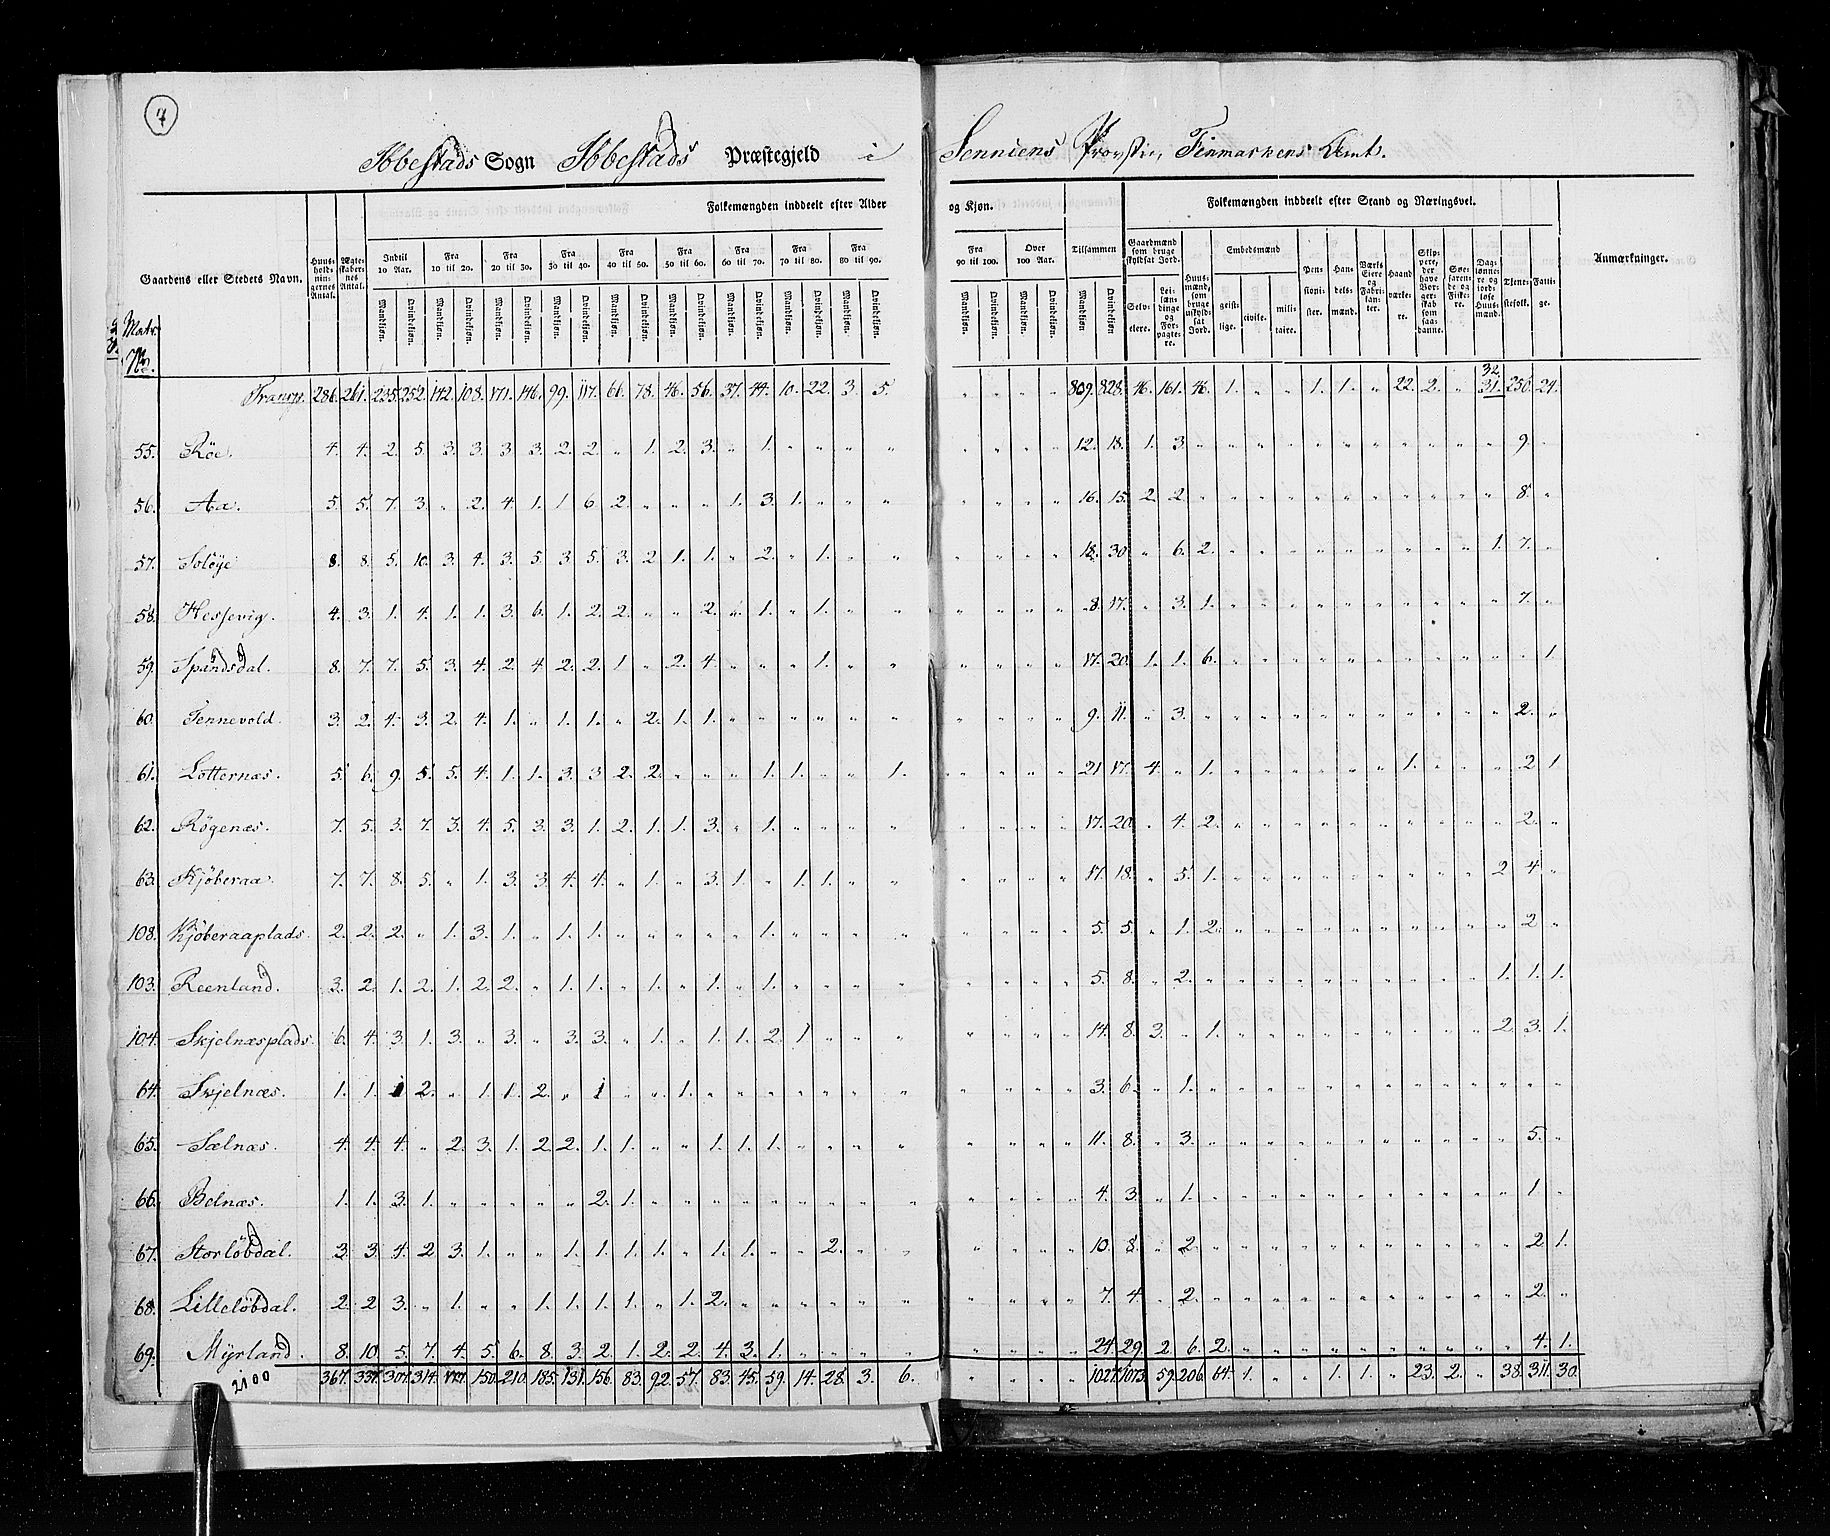 7
Ibbestads Sogn Ibbestads Præstegjeld i Senniens Provstie, Finmarkens Amt.
Folkemængden inddeelt efter Alder og Kjøn. Folkemængden inddeelt efter Stand og Næringsvei.
Gaardens eller Stedets Navn. Huusholdningernes Antal. Ægteskabernes Antal. Indtil 10 Aar. Fra 10 til 20. Fra 20 til 30. Fra 30 til 40. Fra 40 til 50. Fra 50 til 60. Fra 60 til 70. Fra 70 til 80. Fra 80 til 90. Fra 90 til 100. Over 100 Aar. Tilsammen Gaardmænd som bruge skyldsat Jord. Huusmænd, som bruge uskyldsat Jord. Embedsmænd Pensionister. Handelsmænd. Værks Eiere og Fabrikanter. Haandværkere. Skippere, der have Borgerskab som saadanne. Søefarende og Fiskere. Daglønnere og jordløse Huusmænd. Tjenestefolk. Fattige. Anmærkninger.
Mandkjøn. Qvindekjøn. Selveiere. Leilændinge og Forpagtere. geistlige. civile. militaire.
Matr. No.
32
Transp. 286. 261. 235. 252. 142. 108. 171. 146. 99. 117. 66. 78. 46. 56. 37. 44. 10. 22. 3. 5. " " " " 809. 828. 46. 161. 46. 1. " " 1. 1. " 22. 2. " 31. 250. 24.
55. Röe. 4. 4. 2. 5. 3. 3. 3. 3. 2. 2. " 1. 2. 3. " 1. " " " " " " " " 12. 18. 1. 3. " " " " " " " " " " " 9. "
56. Aa. 5. 5. 7. 3. " 2. 4. 1. 1 6 2. " " " 1. 3. 1. " " " " " " " 16. 15. 2. 2. " " " " " " " " " " " 8. "
57. Soløye 8. 8. 5. 10. 3. 4. 3. 5. 3. 5. 3. 2 1. 1. " 2. " 1. " " " " " " 18. 30 " 6. 2. " " " " " " " " " 1. 7. "
58. Hessevig. 4. 3. 1. 4. 1. 1. 3. 6. 1. 2. 2. " " 2. " 1. " 1. " " " " " " 8. 17. " 3. 1. " " " " " " " " " " 7. "
59. Spandsdal. 8. 7. 7. 5. 3. 4. 2. 4. 2. 2. 1 " 2. 4. " " " 1. " " " " " " 17. 20. 1. 1. 6. " " " " " " " " " " " 1.
60. Tennevold. 3. 2. 4. 3. 2. 4. 1. " 1. 1. " 2. 1. 1. " " " " " " " " " " 9. 11. " 3. " " " " " " " " " " " 2. "
61. Lotternæs. 5. 6. 9. 5. 5. 4. 1. 1. 3. 3 2. 2. " " " 1. 1. " " 1. " " " " 21 17. 4. " 1. " " " " " " 1. " " " 2 1
62. Rögenæs. 7. 5. 3. 7. 3. 4. 5. 3. 3. 1. 2. 1. 1. 3. " 1. " " " " " " " " 17. 20. " 4. 2. " " " " " " " " " " 2. "
63. Kjöberaa. 7. 7. 8. 5. " 1. 3. 3. 4. 4. " 1. " 3. 1. " 1. 1. " " " " " " 17. 18. " 5. 1. " " " " " " " " " 2 4. "
108. Kjöberaaplads. 2. 2. 2. " 1. 3. 1. " 1. 1. " " " " " 1. " " " " " " " " 5. 5. " 1. 2. " " " " " " " " " " 2 "
103. Reenland. 3. 2. 1. 2. 1. 2. 2. " 1. 1. " 1. " 1. " 1. " " " " " " " " 5. 8. " 2. " " " " " " " " " " 1. 1. 1.
104. Skjelnæsplads. 6. 4. 3. 1. 3. " 3. " 3. 3. " 1. " 1. 1. 2. 1 " " " " " " " 14. 8. 3. " 1. " " " " " " " " " 2. 3. 1.
64. Skjelnæs. 1. 1. 1 2. " 1. 1. 2. " 1 " " 1. " " " " " " " " " " " 3. 6. " 1. " " " " " " " " " " " " "
65. Sælnæs. 4. 4. 4. " 2. 3. 1. 2. 2. 1. 1. " " 1. 1. 1. " " " " " " " " 11. 8. " 3. " " " " " " " " " " " 5. "
66. Belnæs. 1. 1. 3. 1. " " " " " 2. 1. " " " " " " " " " " " " " 4. 3. " 1. " " " " " " " " " " " 1. "
67. Storløbdal. 3. 3. 4. 2 3. 1. " " 1. 1. 1. 1. " 1. 1. " " 2. " " " " " " 10. 8. " 2. " " " " " " " " " " " 2. 1.
68. Lilleløbdal. 2. 2 3. " 1. " " 1. 1. 1. 1. " 1. 2. " " " " " " " " " " 7. 4. " 2. " " " " " " " " " " " 2. "
69. Myrland. 8. 10. 5. 7. 4. 5. 6. 8. 3. 2. 1. 2. 2. 4. 3. 1. " " " " " " " " 24. 29. 2. 6. 2. " " " " " " " " " " 4. 1.
2100 367. 337. 307. 314. 177. 150. 210. 185. 131. 156. 83. 92. 57. 83. 45. 59. 14. 28. 3. 6. " " " " 1027. 1073. 59. 206. 64. 1. " " 1. 1. " 23. 2. " 38. 311. 30.